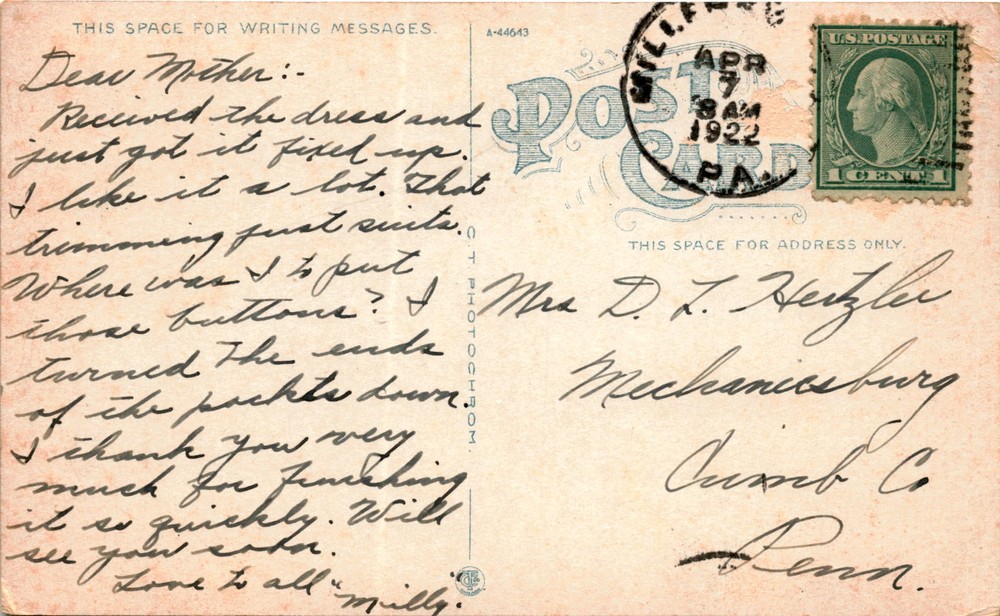 THIS SPACE FOR WRITING MESSAGES.
Dear Mother:-
Received the dress and
just got it fixed up.
I like it a lot. That
trimming just suits.
Where was I to put
those buttons? I
turned the ends
of the pockts down.
I thank you very
much for finishing
it so quickly. Will
see you soon.
Love to all
"Milly.
C T PHOTOCHROM
A-44643
POST
CARD
APR
7
8 AM
1922
PA.
U.S. POSTAGE
1 CENT 1
THIS SPACE FOR ADDRESS ONLY.
Mrs D. L. Hertzler
Mechanicsburg
Cumb Co
Penn.